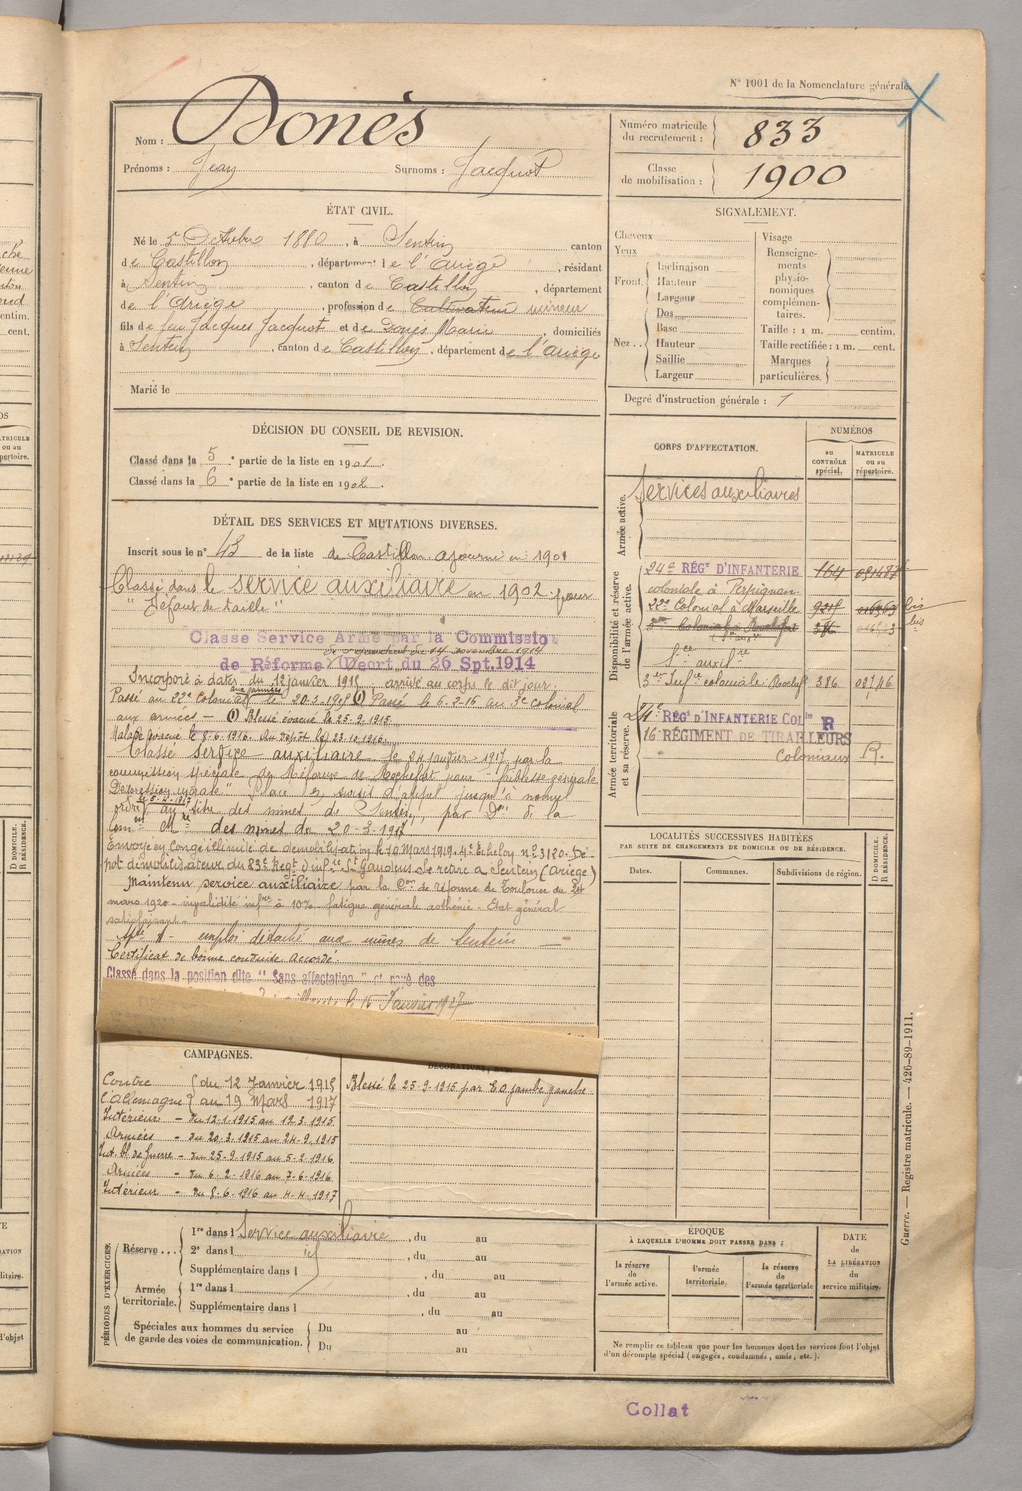 N° 1001 de la Nomenclature générale.
Nom : Donès
Prénoms : Jean Surnoms : Jacquot
Numéro matricule du recrutement : 833
Classe de mobilisation : 1900
ÉTAT CIVIL.
Né le 5 Octobre 1880, à Sentein canton
de Castillon, département de l'Ariège, résidant
à Sentein, canton de Castillon, département
de l'Ariège, profession de Cultivateur mineur
fils de feu Jacques Jacquot et de Donès Marie domiciliés
à Sentein, canton de Castillon, département de l'Ariège
Marié le
SIGNALEMENT.
Cheveux
Yeux
Front. Inclinaison
Hauteur
Largeur
Nez.. Dos
Base
Hauteur
Saillie
Largeur
Visage
Renseignements physionomiques complémentaires.
Taille : 1 m. centim.
Taille rectifiée : 1 m. cent.
Marques particulières.
Degré d'instruction générale : 1
DÉCISION DU CONSEIL DE REVISION.
Classé dans la 5e partie de la liste en 1901.
Classé dans la 6e partie de la liste en 1902.
DÉTAIL DES SERVICES ET MUTATIONS DIVERSES.
Inscrit sous le n° 43 de la liste de Castillon ajourné en 1901
Classé dans le service auxiliaire en 1902 pour
"Défaut de taille"
Classe Service Armé par la Commission
de Réforme Décret du 26 Spt. 1914
14 novembre 1914
Incorporé à dater du 12 janvier 1915, arrivé au corps le dit jour.
Passé au 22e Colonial aux armées le 20-3-1915 (1) Passé le 6-2-16 au 3e colonial
aux armées — (1) Blessé évacué le 25-9-1915.
Malade évacué le 8-6-1916. Au dépôt le 23-10-1916.
Classé service auxiliaire le 24 janvier 1917 par la
commission spéciale de Réforme de Rochefort pour "faiblesse générale
Dépression morale" Placé en sursis d'appel jusqu'à nouvel
ordre au titre des mines de Sentein, par Don de la
des mines du 20-3-1917
Envoyé en Congé illimité de démobilisation le 10 Mars 1919. 4e Echelon n° 3120. Dépôt
démobilisateur du 83e Regt d'infie St Gaudens se retire à Sentein (Ariège)
Maintenu service auxiliaire par la Con de réforme de Toulouse du 24
mars 1920 - invalidité infre à 10% - fatigue générale asthénie - Etat général
satisfaisant -
emploi détaché aux mines de Sentein —
Certificat de bonne conduite accordé.
Classé dans la position dite "Sans affectation" et rayé des
le 15 Janvier 1927
CORPS D'AFFECTATION.
NUMÉROS
au CONTRÔLE spécial.
MATRICULE ou au répertoire.
Armée active.
Services auxiliaires
Disponibilité et réserve de l'armée active.
24e RÉGt D'INFANTERIE 164
coloniale à Perpignan
22e Colonial à Marseille bis
3me Colonial à Rochefort 386 bis
Sce auxilre
3me Infie coloniale Rochefort 386
Armée territoriale et sa réserve.
24e RÉGt D'INFANTERIE COLle R
16e RÉGIMENT DE TIRAILLEURS
Coloniaux R.
LOCALITÉS SUCCESSIVES HABITÉES
PAR SUITE DE CHANGEMENTS DE DOMICILE OU DE RÉSIDENCE.
Dates. Communes. Subdivisions de région. D DOMICILE. R RÉSIDENCE.
CAMPAGNES.
Contre du 12 Janvier 1915
l'Allemagne au 19 Mars 1917
Intérieur - du 12-1-1915 au 12-3-1915
Armées - du 20-3-1915 au 24-9-1915
Int. bl. de guerre - du 25-9-1915 au 5-2-1916
Armées - du 6-2-1916 au 7-6-1916
Intérieur - du 8-6-1916 au 4-4-1917
Blessé le 25-9-1915 par EO jambe gauche
PÉRIODES D'EXERCICES.
Réserve... 1re dans l Service auxiliaire, du au
2e dans l id, du au
Supplémentaire dans l, du au
Armée territoriale. 1re dans l, du au
Supplémentaire dans l, du au
Spéciales aux hommes du service de garde des voies de communication. Du au
Du au
ÉPOQUE
À LAQUELLE L'HOMME DOIT PASSER DANS :
la réserve de l'armée active.
l'armée territoriale.
la réserve de l'armée territoriale
DATE de LA LIBÉRATION du service militaire.
Ne remplir ce tableau que pour les hommes dont les services font l'objet
d'un décompte spécial (engagés, condamnés, omis, etc.).
Guerre. — Registre matricule. — 426-89-1911.
Collat